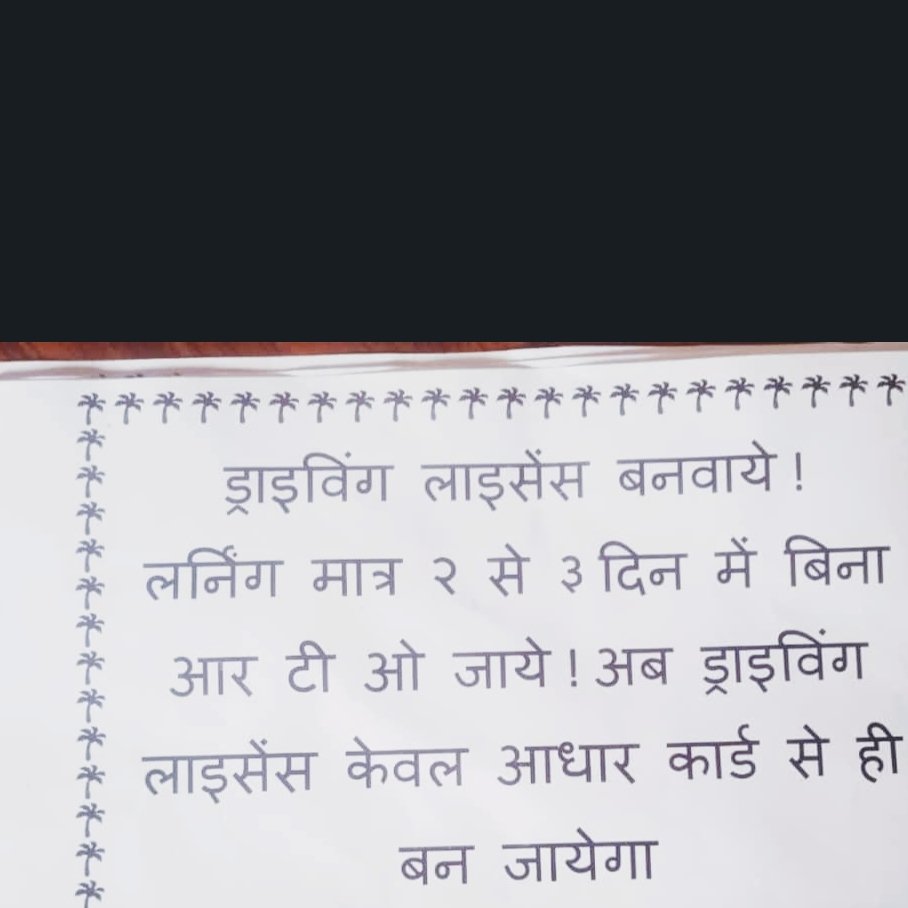 ड्राइविंग लाइसेंस बनवाये !
लर्निंग मात्र २ से ३ दिन में बिना
आर टी ओ जाये ! अब ड्राइविंग
लाइसेंस केवल आधार कार्ड से ही
बन जायेगा